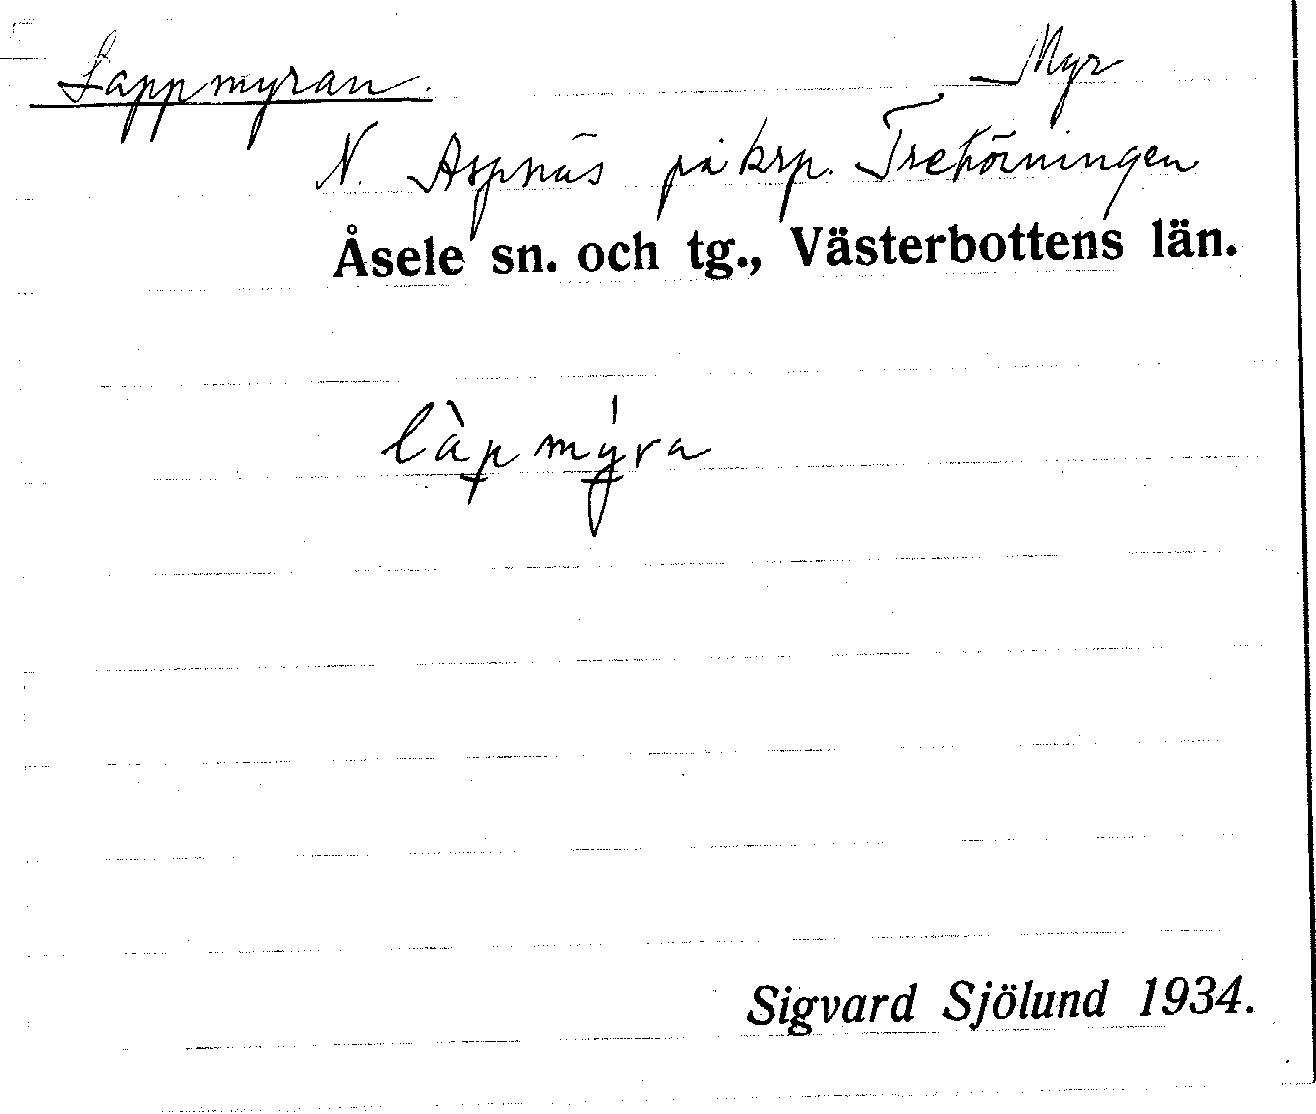 Lappmyran. Myr
N. Aspnäs på krp. Trehörningen
Åsele sn. och tg., Västerbottens län.
làpmýra
Sigvard Sjölund 1934.